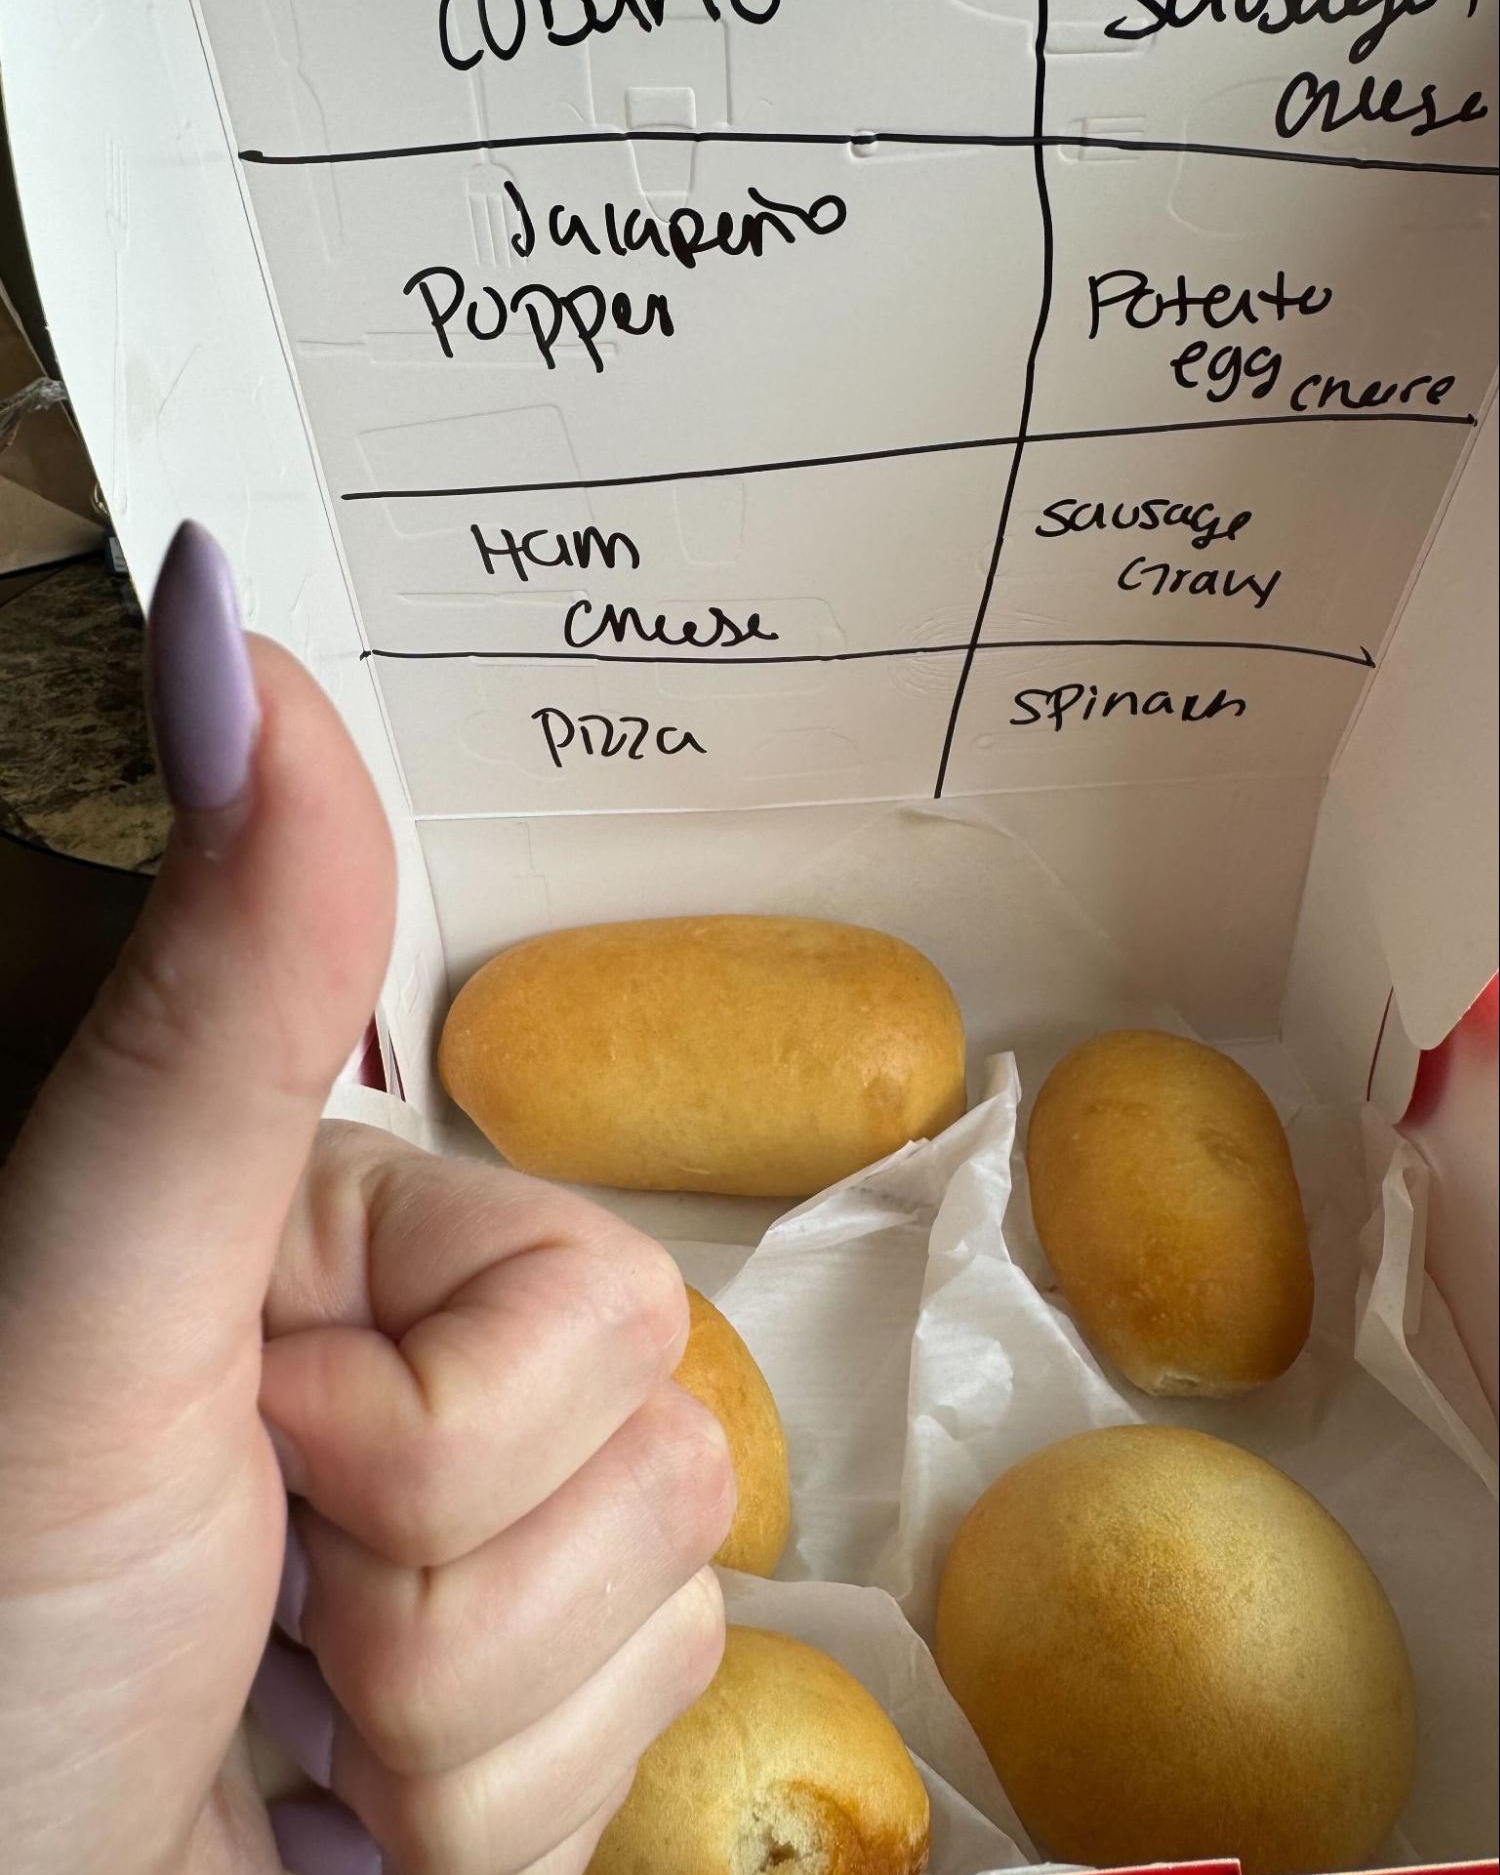 Cubano
Sausage
Cheese
Jalapeño
Popper
Potato
egg cheese
Ham
Cheese
Sausage
Gravy
Pizza
Spinach